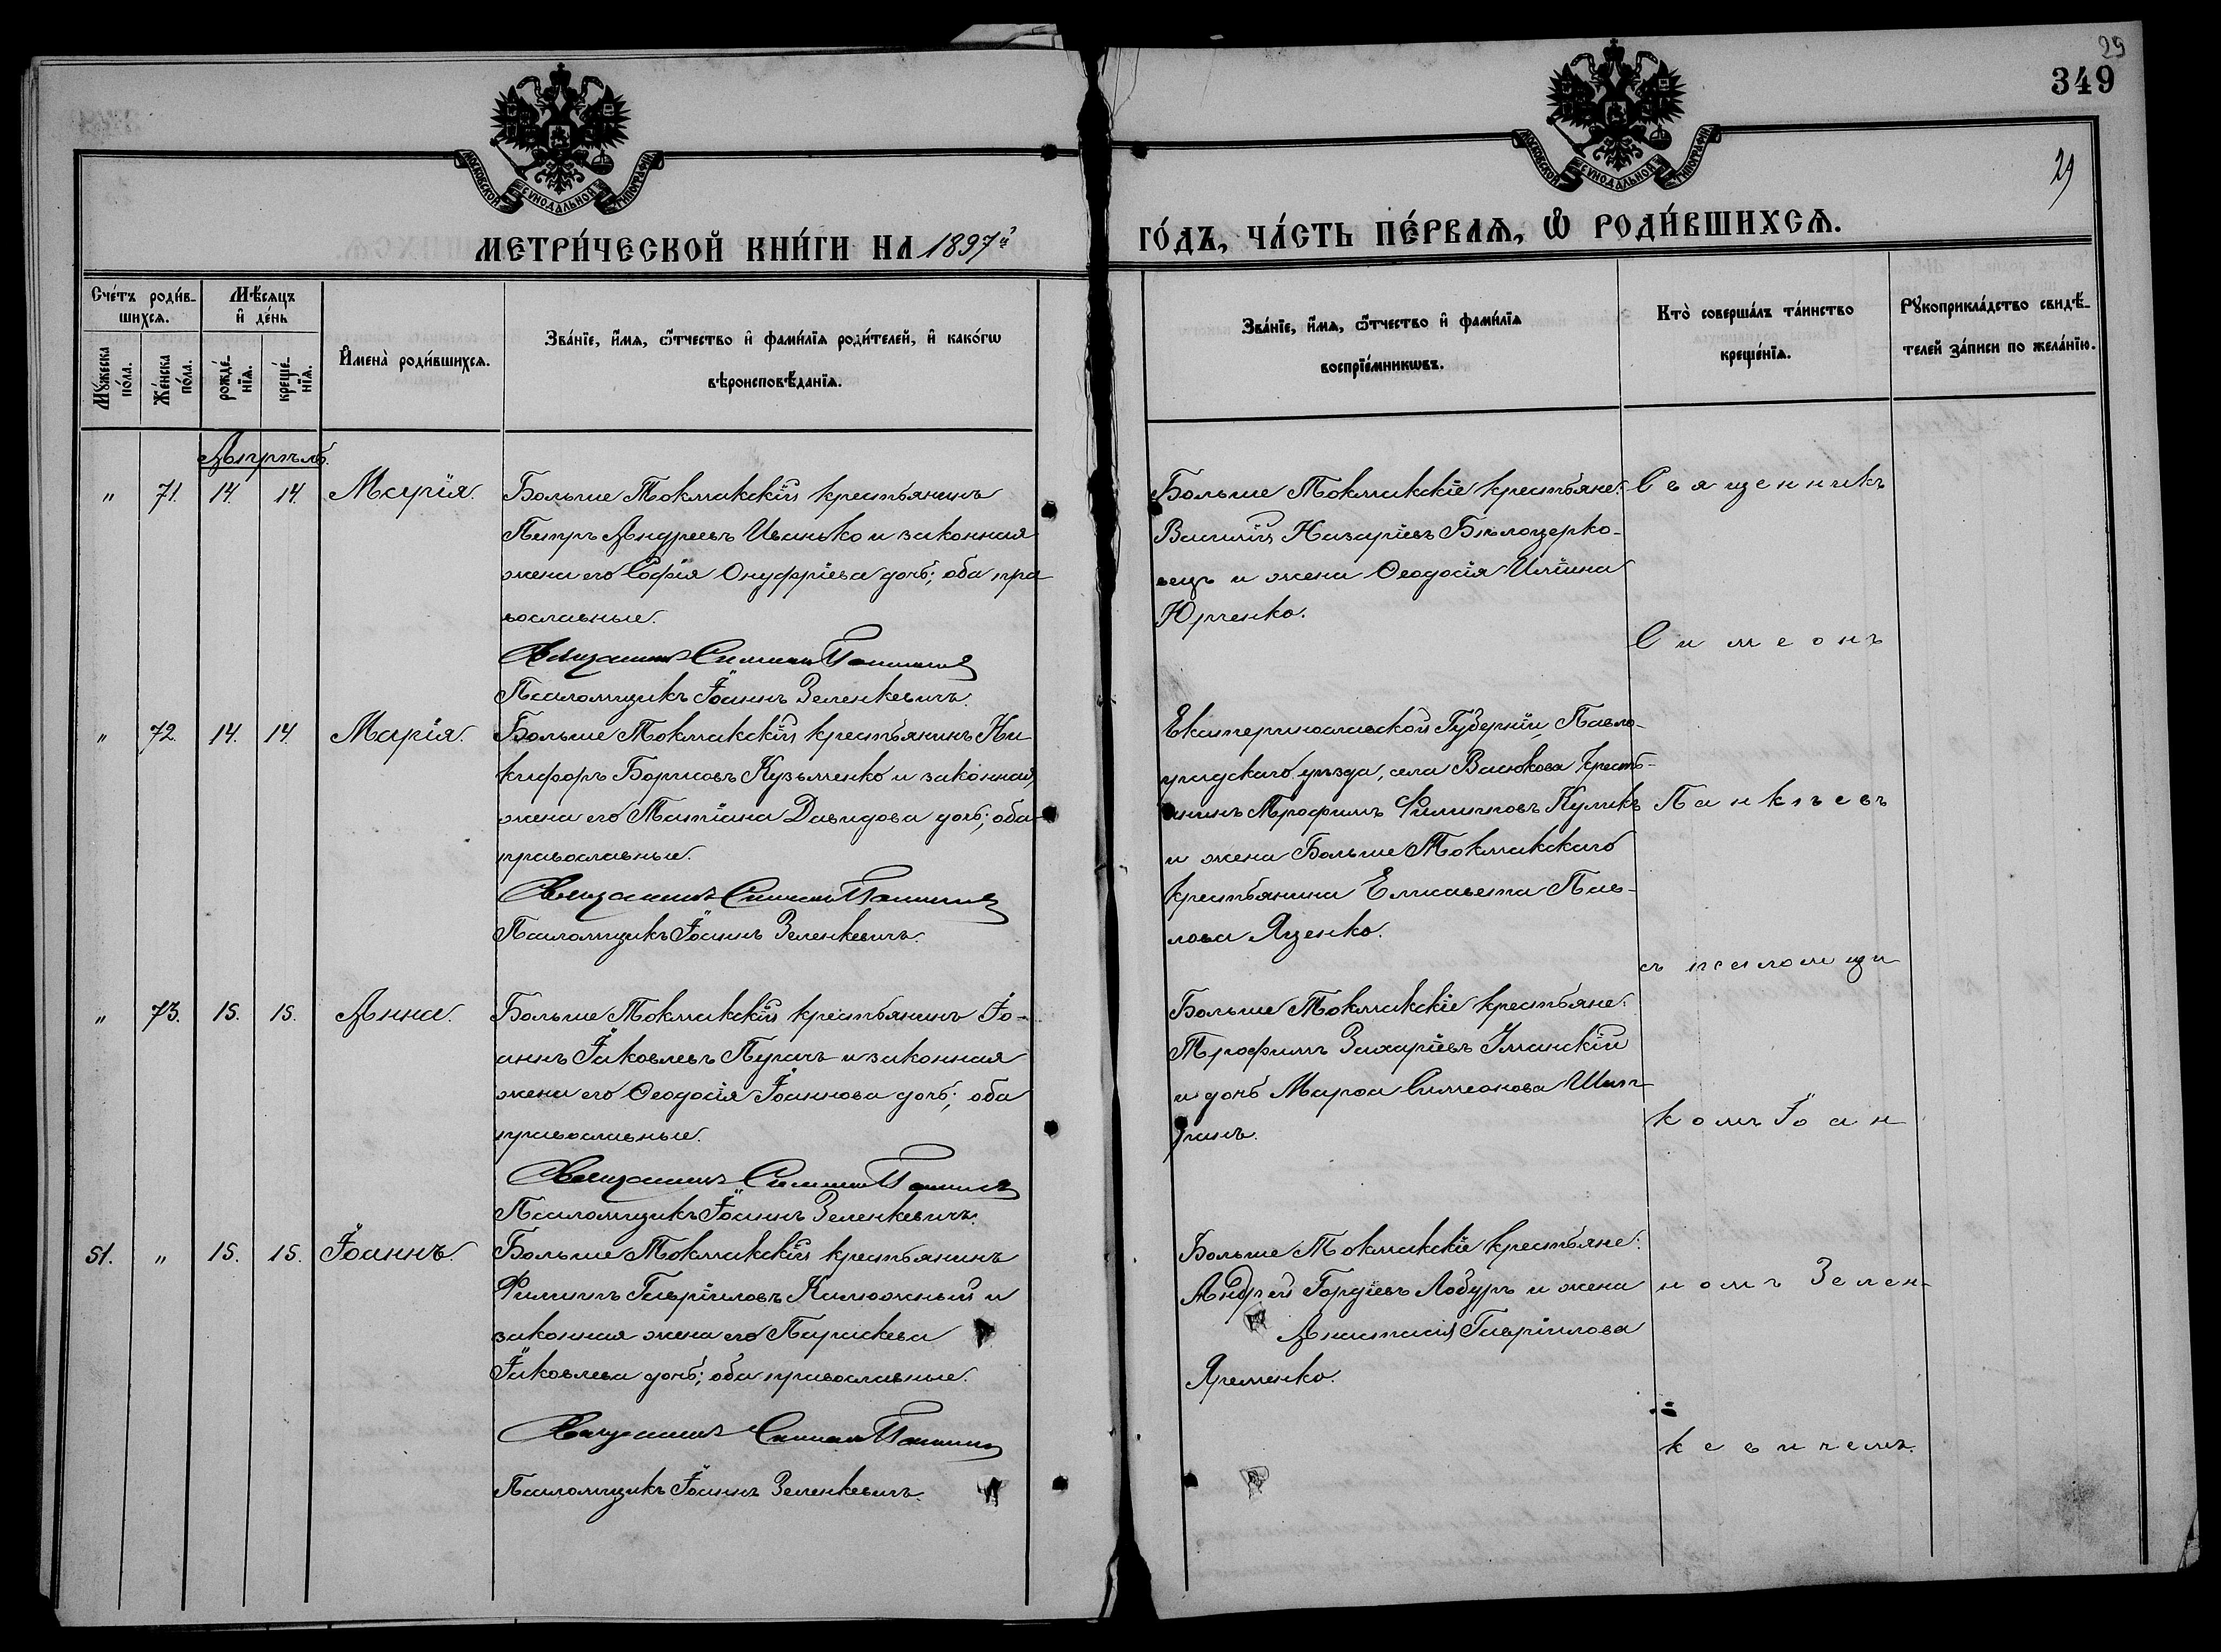 29
349
29
МОСКОВСКОЙ СѴНОДАЛЬНОЙ ТИПОГРАФІИ
МОСКОВСКОЙ СѴНОДАЛЬНОЙ ТИПОГРАФІИ
МЕТРИ́ЧЕСКОЙ КНИ́ГИ НА 1897й
ГО́ДЪ, ЧА́СТЬ ПЕ́РВАѦ, Ѽ РОДИ́ВШИХСѦ.
Сче́тъ роди́в-
шихсѧ.
Мꙋ́жеска
по́ла.
Же́нска
по́ла.
Мѣ́сѧцъ
и҆ де́нь
рожде́-
нїѧ.
креще́-
нїѧ.
И҆мена̀ роди́вшихсѧ.
Зва́нїе, и҆́мѧ, ѻ҆́тчество и҆ фами́лїѧ роди́телей, и҆ како́гѡ
вѣроисповѣ́данїѧ.
Зва́нїе, и҆́мѧ, ѻ҆́тчество и҆ фами́лїѧ
воспрїе́мникѡвъ.
Кто̀ соверша́лъ та́инство
креще́нїѧ.
Рꙋкоприкла́дство свидѣ́-
телей за́писи по жела́нїю.
Апрѣль.
" 71. 14. 14. Марія.
Больше Токмакскій крестьянинъ
Петръ Андреевъ Иванько и законная
жена его Софія Онуфріева дочь; оба пра-
вославные.
Священникъ Симеонъ
Псаломщикъ Іоаннъ Зеленкевичъ.
Больше Токмакскіе крестьяне:
Василій Назаріевъ Бѣлоцерко-
вецъ и жена Ѳеодосія Иліина
Юрченко.
" 72. 14. 14. Марія.
Больше Токмакскій крестьянинъ Ни
кифоръ Борисовъ Кузьменко и законная
жена его Татіана Давидова дочь; оба
православные.
Священникъ Симеонъ
Псаломщикъ Іоаннъ Зеленкевичъ.
Екатеринославской Губерніи, Павло-
градскаго уѣзда, села Васюкова кресть-
янинъ Трофимъ Филипповъ Куликъ
и жена Больше Токмакскаго
крестьянина Елисавета Пав-
лова Яценко.
" 73. 15. 15. Анна.
Больше Токмакскій крестьянинъ Іо-
аннъ Іаковлевъ Пугачъ и законная
жена его Ѳеодосія Іоаннова дочь; оба
православные.
Священникъ Симеонъ
Псаломщикъ Іоаннъ Зеленкевичъ.
Больше Токмакскіе крестьяне:
Трофимъ Захаріевъ Уманскій
и дочь Марѳа Симеонова
51. " 15. 15. Іоаннъ.
Больше Токмакскій крестьянинъ
Филиппъ Гавріиловъ Калюжный и
законная жена его Параскева
Іаковлева дочь; оба православные.
Священникъ Симеонъ
Псаломщикъ Іоаннъ Зеленкевичъ.
Больше Токмакскіе крестьяне:
Андрей Гордіевъ Лобуръ и жена
Анастасія Гавріилова
Яременко.
Священникъ
Симеонъ
Панкѣевъ
съ псаломщи
комъ Іоан
номъ Зелен-
кевичемъ.